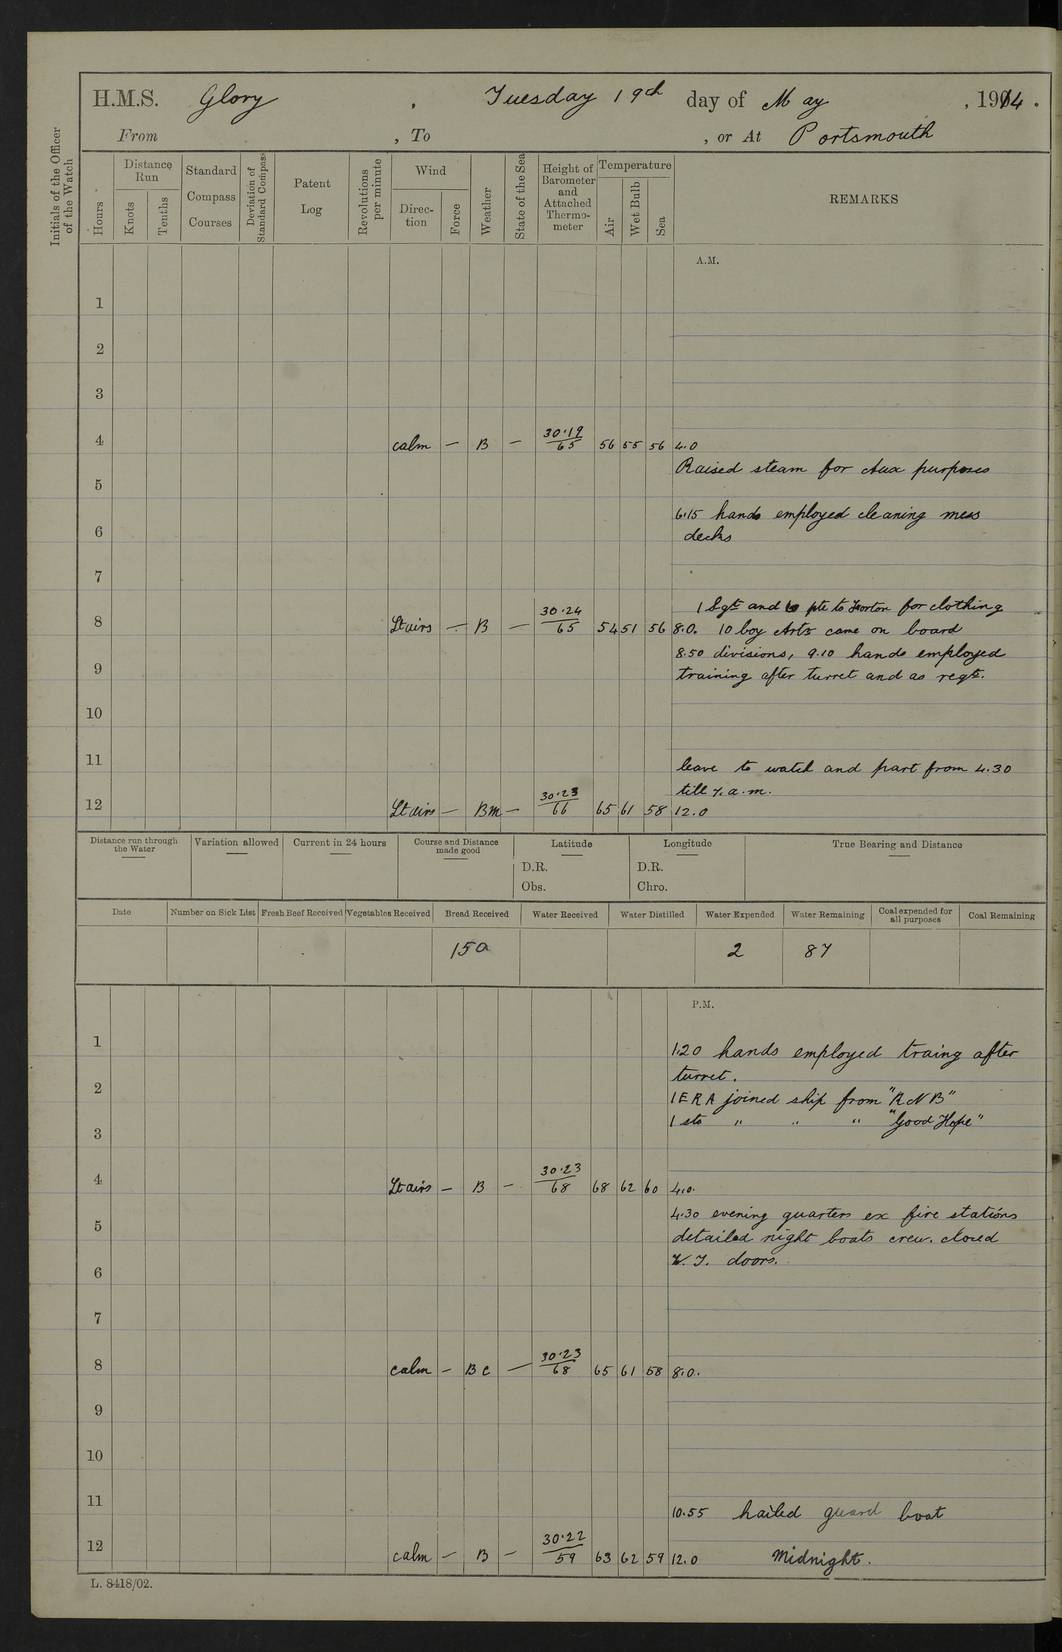 H.M.S. Glory, Tuesday 19th day of May, 1914.
From , To , or At Portsmouth
Initials of the Officer of the Watch
Hours
Distance Run
Knots
Tenths
Standard Compass Courses
Deviation of Standard Compass
Patent Log
Revolutions per minute
Wind
Direction
Force
Weather
State of the Sea
Height of Barometer and Attached Thermometer
Temperature
Air
Wet Bulb
Sea
REMARKS
A.M.
1
2
3
4 calm — B — 30.19/65 56 55 56 4.0
Raised steam for Aux purposes
5
6.15 hands employed cleaning mess
6 decks
7
1 Sgt and 6 pte to Forton for clothing
8 Lt airs — B — 30.24/65 54 51 56 8.0. 10 boy Arts came on board
8.50 divisions, 9.10 hands employed
9 training after turret and as reqte.
10
11
leave to watch and part from 4.30
till 7.a.m.
12 Lt airs — BM — 30.23/66 65 61 58 12.0
Distance run through the Water
Variation allowed
Current in 24 hours
Course and Distance made good
Latitude
D.R.
Obs.
Longitude
D.R.
Chro.
True Bearing and Distance
Date Number on Sick List Fresh Beef Received Vegetables Received Bread Received Water Received Water Distilled Water Expended Water Remaining Coal expended for all purposes Coal Remaining
150 2 87
P.M.
1 1.20 hands employed traing after
turret.
2 1 E R A joined ship from "R N B"
1 sto " " " "Good Hope"
3
4 Lt airs — B — 30.23/68 68 62 60 4.0.
4.30 evening quarters ex fire stations
5 detailed night boats crew. closed
W. T. doors.
6
7
8 calm — B C — 30.23/68 65 61 58 8.0.
9
10
11
10.55 hailed guard boat
12 calm — B — 30.22/59 63 62 59 12.0 Midnight.
L. 8418/02.